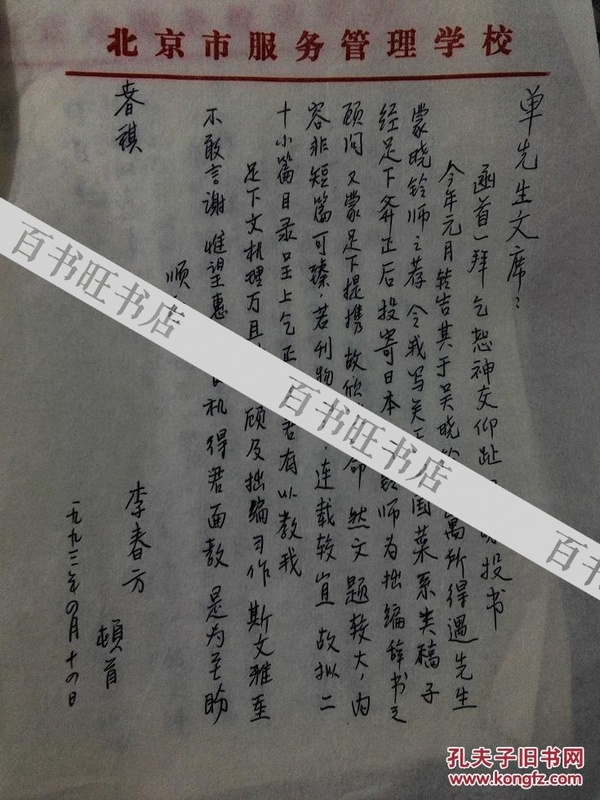 北京市服务管理学校
单先生文席：
函首一拜乞恕神交仰趾 投书
今年元月转告其于吴晓 寓所得遇先生
蒙晓铃师之荐 令我写关 国菜系类稿子
经足下斧正后投寄日本 铃师为拙编辞书之
顾问 又蒙足下提携 故欣 命 然文题较大，内
容非短篇可臻，若刊物 ，连载较宜 故拟二
十小篇目录呈上乞正 君有以教我
足下文机理万且 顾及拙编习作 斯文雅至
不敢言谢 惟望惠 机得君面教 是为至盼
顺
春祺
李春方
顿首
一九九三年四月十四日
百书旺书店
百书旺书店
百书旺书店
孔夫子旧书网
www.kongfz.com